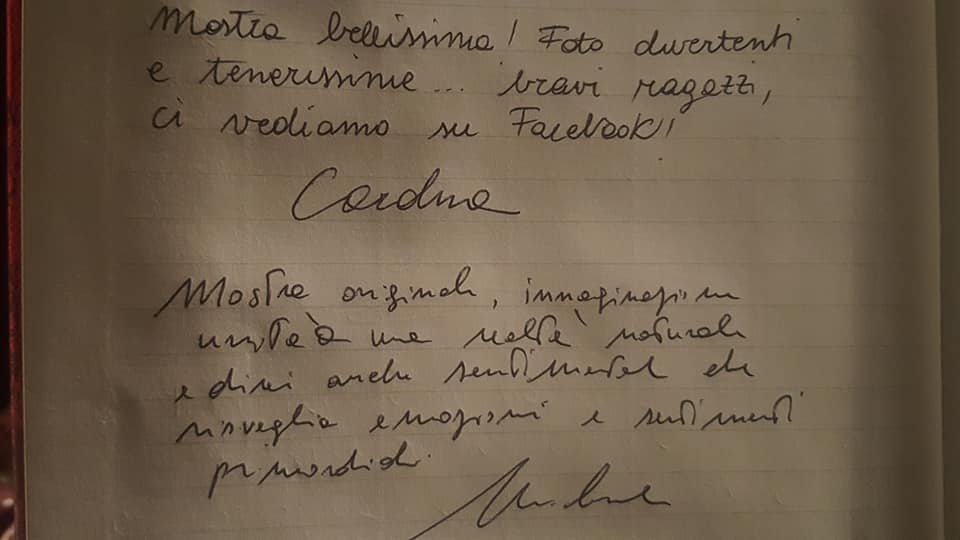 Mostra bellissima! Foto divertenti
e tenerissime... bravi ragazzi,
ci vediamo su Facebook!
Mostra originale, immaginazione
unita a una realtà naturale
e direi anche sentimental che
risveglia emozioni e sentimenti
primordiali.